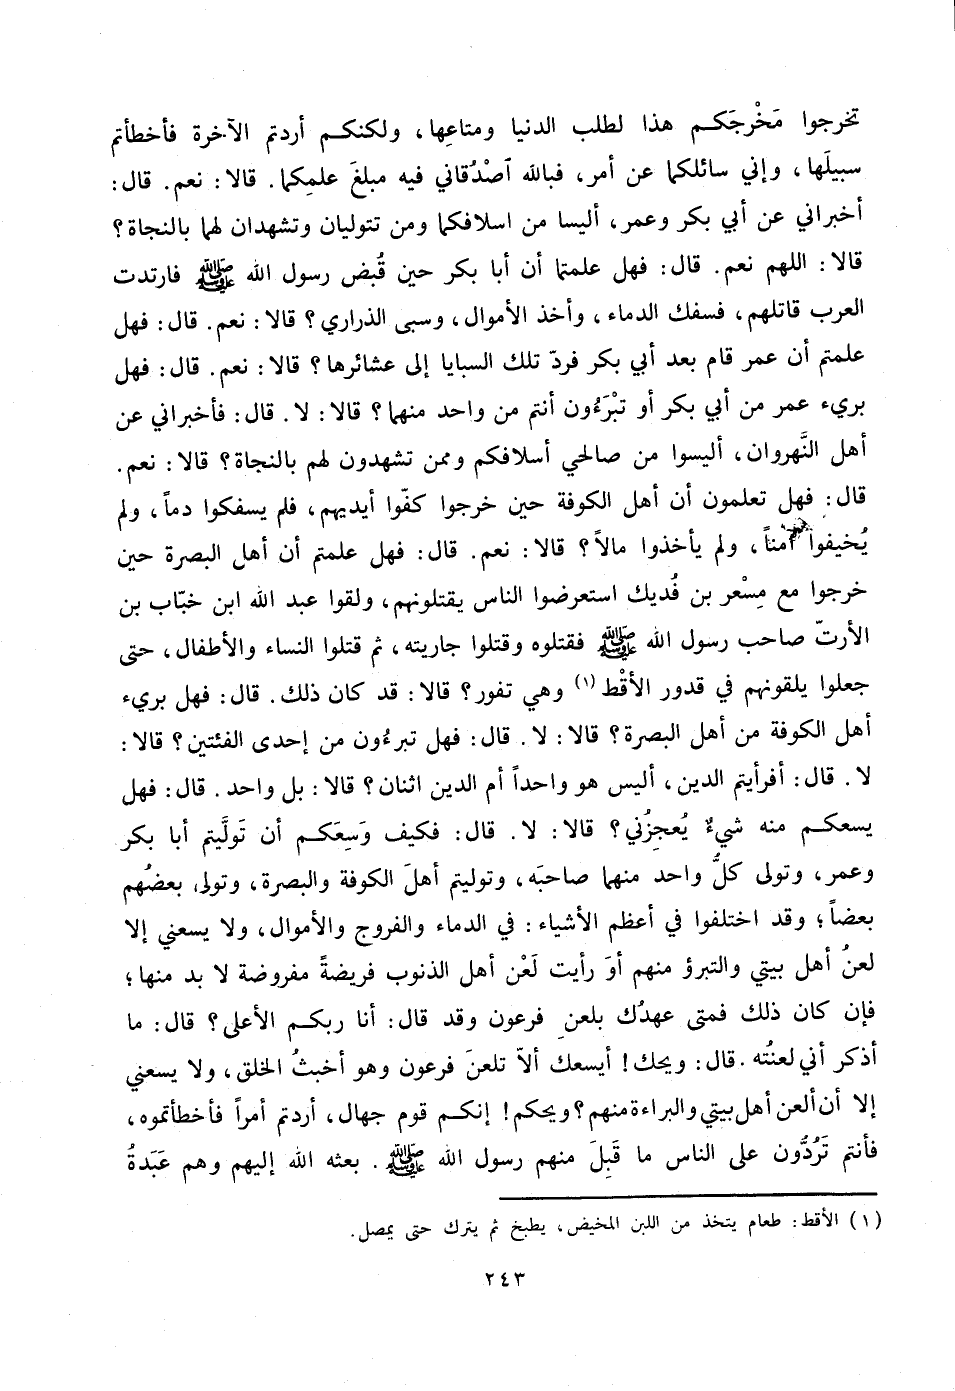 تخرجوا مَخْرجَكم هذا لطلب الدنيا ومتاعِها، ولكنكم أردتم الآخرة فأخطأتم
سبيلَها، وإني سائلكما عن أمر، فبالله ٱصْدُقاني فيه مبلغَ علمِكما. قالا: نعم. قال:
أخبراني عن أبي بكر وعمر، أليسا من اسلافكما ومن تتوليان وتشهدان لهما بالنجاة؟
قالا: اللهم نعم. قال: فهل علمتما أن أبا بكر حين قُبض رسول الله ﷺ فارتدت
العرب قاتلهم، فسفك الدماء، وأخذ الأموال، وسبى الذراري؟ قالا: نعم. قال: فهل
علمتم أن عمر قام بعد أبي بكر فردّ تلك السبايا إلى عشائرها؟ قالا: نعم. قال: فهل
بريء عمر من أبي بكر أو تبْرَءُون أنتم من واحد منهما؟ قالا: لا. قال: فأخبراني عن
أهل النَّهروان، أليسوا من صالحي أسلافكم وممن تشهدون لهم بالنجاة؟ قالا: نعم.
قال: فهل تعلمون أن أهل الكوفة حين خرجوا كفّوا أيديهم، فلم يسفكوا دماً، ولم
يُخيفوا آمناً، ولم يأخذوا مالاً؟ قالا: نعم. قال: فهل علمتم أن أهل البصرة حين
خرجوا مع مِسْعر بن فُديك استعرضوا الناس يقتلونهم، ولقوا عبد الله ابن خبّاب بن
الأرتّ صاحب رسول الله ﷺ فقتلوه وقتلوا جاريته، ثم قتلوا النساء والأطفال، حتى
جعلوا يلقونهم في قدور الأقْط (١) وهي تفور؟ قالا: قد كان ذلك. قال: فهل بريء
أهل الكوفة من أهل البصرة؟ قالا: لا. قال: فهل تبرءُون من إحدى الفئتين؟ قالا:
لا. قال: أفرأيتم الدين، أليس هو واحداً أم الدين اثنان؟ قالا: بل واحد. قال: فهل
يسعكم منه شيءٌ يُعجزُني؟ قالا: لا. قال: فكيف وَسِعَكم أن تَولَّيتم أبا بكر
وعمر، وتولى كلُّ واحد منهما صاحبَه، وتوليتم أهلَ الكوفة والبصرة، وتولى بعضُهم
بعضاً؛ وقد اختلفوا في أعظم الأشياء: في الدماء والفروج والأموال، ولا يسعني إلا
لعنُ أهل بيتي والتبرؤ منهم أوَ رأيت لَعْن أهل الذنوب فريضةً مفروضة لا بد منها؛
فإن كان ذلك فمتى عهدُك بلعنِ فرعون وقد قال: أنا ربكم الأعلى؟ قال: ما
أذكر أني لعنتُه. قال: ويحك! أيسعك ألاّ تلعنَ فرعون وهو أخبثُ الخلق، ولا يسعني
إلا أن ألعن أهل بيتي والبراءة منهم؟ ويحكم! إنكم قوم جهال، أردتم أمراً فأخطأتموه،
فأنتم تَرُدُّون على الناس ما قَبِلَ منهم رسول الله ﷺ. بعثه الله إليهم وهم عَبَدةُ
(١) الأقط: طعام يتخذ من اللبن المخيض، يطبخ ثم يترك حتى يمصل.
٢٤٣